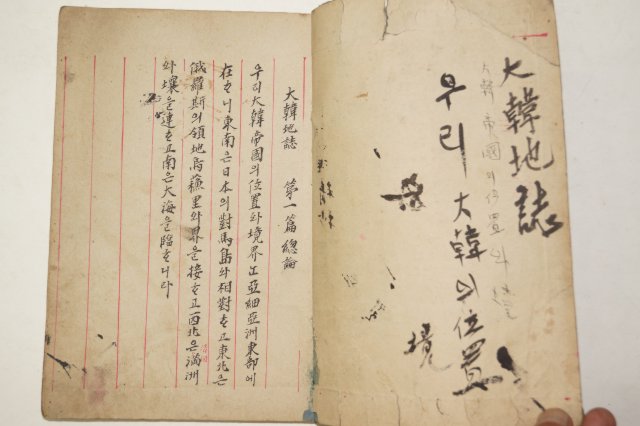 大韓地誌
大韓帝國의位置와
우리 大韓의位置
境
大韓地誌 第一篇 總論
우리大韓帝國의位置와境界ᄂᆞᆫ亞細亞洲東部에
在ᄒᆞ니東南은日本의對馬島와相對ᄒᆞ고東北은
俄羅斯의領地烏蘇里와界을接ᄒᆞ고西北은滿洲
와壤을連ᄒᆞ고南은大海을臨ᄒᆞ니라